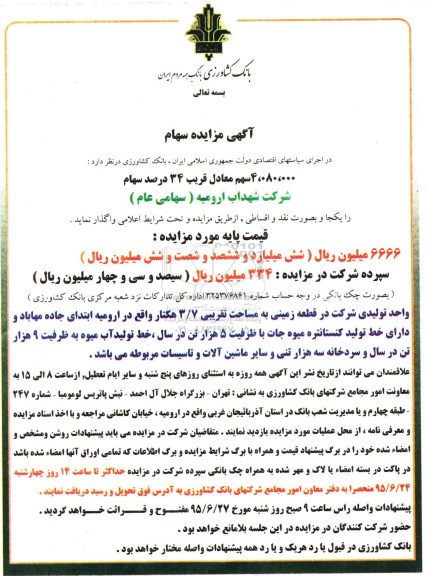 بانک کشاورزی بانک همه مردم ایران
بسمه تعالی
آگهی مزایده سهام
در اجرای سیاستهای اقتصادی دولت جمهوری اسلامی ایران ، بانک کشاورزی درنظر دارد :
۴،۰۸۰،۰۰۰سهم معادل قریب ۳۴ درصد سهام
شرکت شهداب ارومیه ( سهامی عام )
را یکجا و بصورت نقد و اقساطی ، ازطریق مزایده و تحت شرایط اعلامی واگذار نماید .
قیمت پایه مورد مزایده :
۶۶۶۶ میلیون ریال ( شش میلیارد و ششصد و شصت و شش میلیون ریال )
سپرده شرکت در مزایده : ۳۳۴ میلیون ریال ( سیصد و سی و چهار میلیون ریال )
( بصورت چک بانکی در وجه حساب شماره اداره کل تدارکات نزد شعبه مرکزی بانک کشاورزی )
واحد تولیدی شرکت در قطعه زمینی به مساحت تقریبی ۳/۷ هکتار واقع در ارومیه ابتدای جاده مهاباد و
دارای خط تولید کنستانتره میوه جات با ظرفیت ۵ هزار تن در سال ،خط تولیدآب میوه به ظرفیت ۹ هزار
تن در سال و سردخانه سه هزار تنی و سایر ماشین آلات و تاسیسات مربوطه می باشد .
علاقمندان می توانند ازتاریخ نشر این آگهی همه روزه به استثنای روزهای پنج شنبه و سایر ایام تعطیل, ازساعت ۸ الی ۱۵ به
معاونت امور مجامع شرکتهای بانک کشاورزی به نشانی : تهران - بزرگراه جلال آل احمد - نبش پاتریس لومومبا - شماره ۲۴۷
- طبقه چهارم و یا مدیریت شعب بانک در استان آذربایجان غربی واقع در ارومیه ، خیابان کاشانی مراجعه و با اخذ اسناد مزایده
و معرفی نامه ، از محل عملیات مورد مزایده بازدید نمایند . متقاضیان شرکت در مزایده می باید پیشنهادات روشن و مشخص و
امضاء شده خود را در برگ پیشنهاد قیمت و همراه با برگ شرایط مزایده و برگ اطلاعات که تمامی اوراق آنها امضاء شده باشد
در پاکت در بسته امضاء یا لاک و مهر شده به همراه چک بانکی سپرده شرکت در مزایده حداکثر تا ساعت ۱۴ روز چهارشنبه
۹۵/۶/۲۴ منحصرا به دفتر معاون امور مجامع شرکتهای بانک کشاورزی به آدرس فوق تحویل و رسید دریافت نمایند .
پیشنهادات واصله راس ساعت ۹ صبح روز شنبه مورخ ۹۵/۶/۲۷ مفتوح و قرائت خواهد گردید .
حضور شرکت کنندگان در مزایده در این جلسه بلامانع خواهد بود .
بانک کشاورزی در قبول یا رد هریک و یا رد همه پیشنهادات واصله مختار خواهد بود .